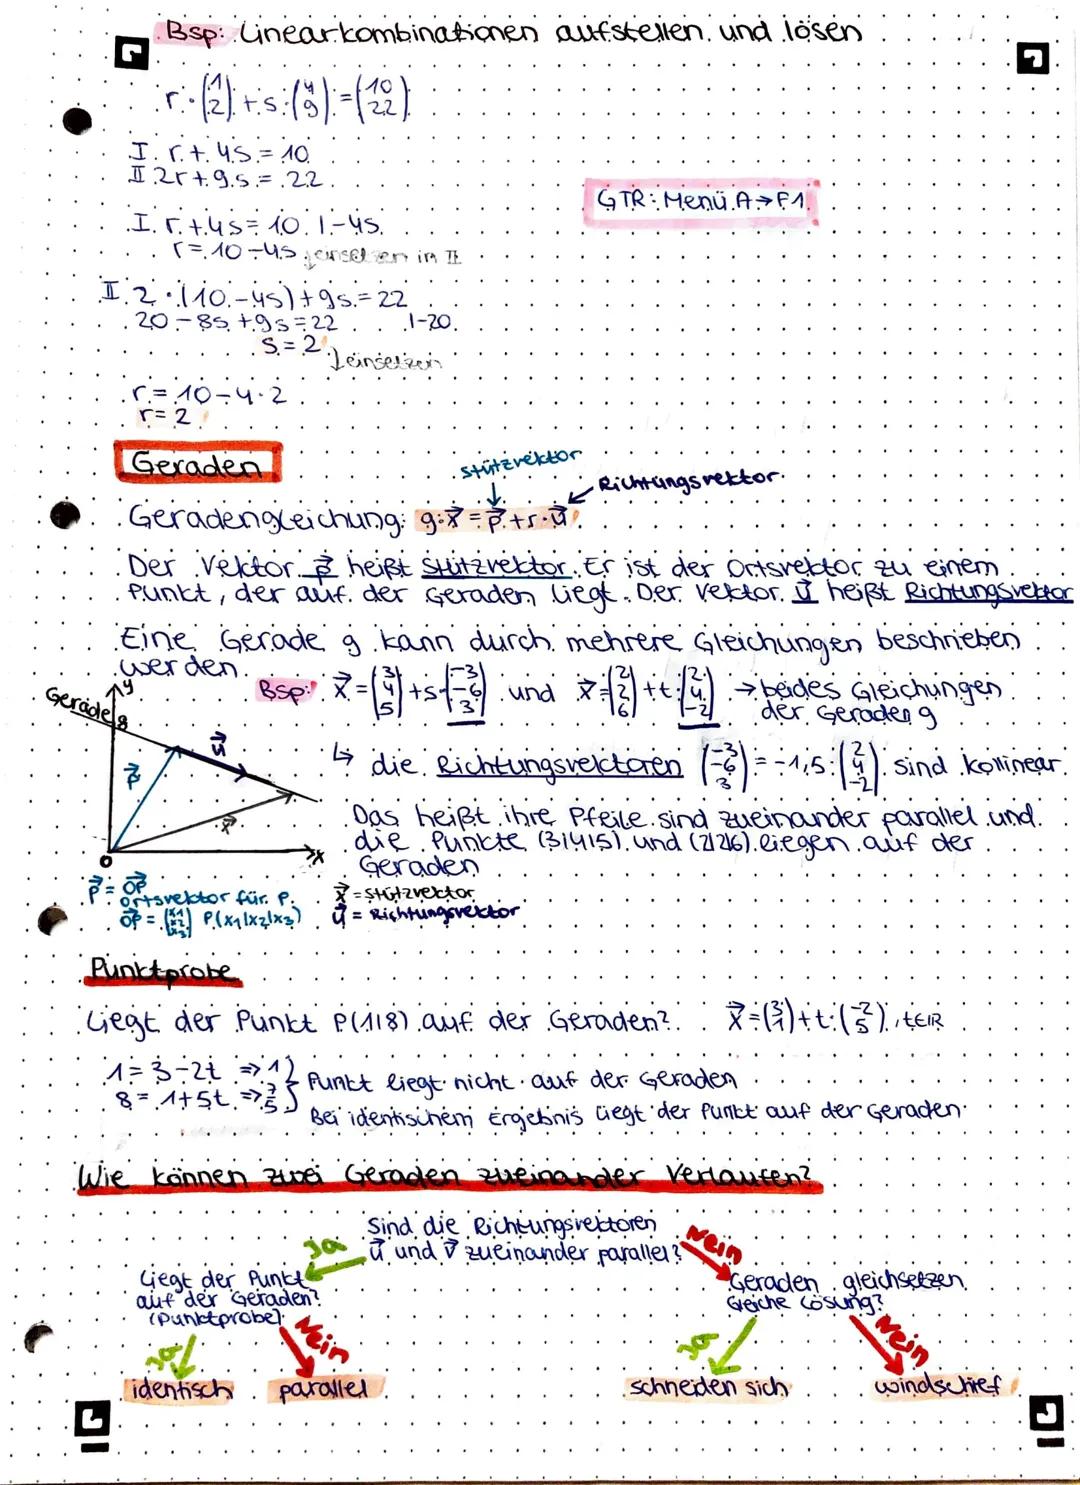 Bsp: Linearkombinationen aufstellen und lösen
r · (1 2) + s · (4 9) = (10 22)
I r + 4s = 10
II 2r + 9s = 22
GTR: Menü A → F1
I r + 4s = 10 | -4s
r = 10 - 4s ↓ einsetzen in II
II 2 · (10 - 4s) + 9s = 22
20 - 8s + 9s = 22 | -20
s = 2
↓ einsetzen
r = 10 - 4 · 2
r = 2
Geraden
Stützvektor
Richtungsvektor
Geradengleichung: g: x⃗ = p⃗ + r · u⃗
Der Vektor p⃗ heißt Stützvektor. Er ist der Ortsvektor zu einem
Punkt, der auf der Geraden liegt. Der Vektor u⃗ heißt Richtungsvektor
Eine Gerade g kann durch mehrere Gleichungen beschrieben
werden.
Bsp: x⃗ = (3 4 5) + s · (-3 -6 3) und x⃗ = (2 2 6) + t · (2 4 -2) → beides Gleichungen
der Geraden g
Gerade g
y
u⃗
p⃗
x⃗
0
x
↳ die Richtungsvektoren (-3 -6 3) = -1,5 · (2 4 -2) sind kollinear.
Das heißt ihre Pfeile sind zueinander parallel und
die Punkte (3|4|5) und (2|2|6) liegen auf der
Geraden
p⃗ = OP⃗
Ortsvektor für P.
OP⃗ = (x1 x2 x3) P(x1|x2|x3)
x⃗ = Stützvektor
u⃗ = Richtungsvektor
Punktprobe
Liegt der Punkt P(1|8) auf der Geraden? x⃗ = (3 1) + t · (-2 5), t∈ℝ
1 = 3 - 2t => 1
8 = 1 + 5t => 7/5
} Punkt liegt nicht auf der Geraden
Bei identischem Ergebnis liegt der Punkt auf der Geraden.
Wie können zwei Geraden zueinander verlaufen?
Sind die Richtungsvektoren
u⃗ und v⃗ zueinander parallel?
Ja
Nein
Liegt der Punkt
auf der Geraden?
(Punktprobe)
Geraden gleichsetzen
Gleiche Lösung?
Ja
Nein
Ja
Nein
identisch
parallel
schneiden sich
windschief